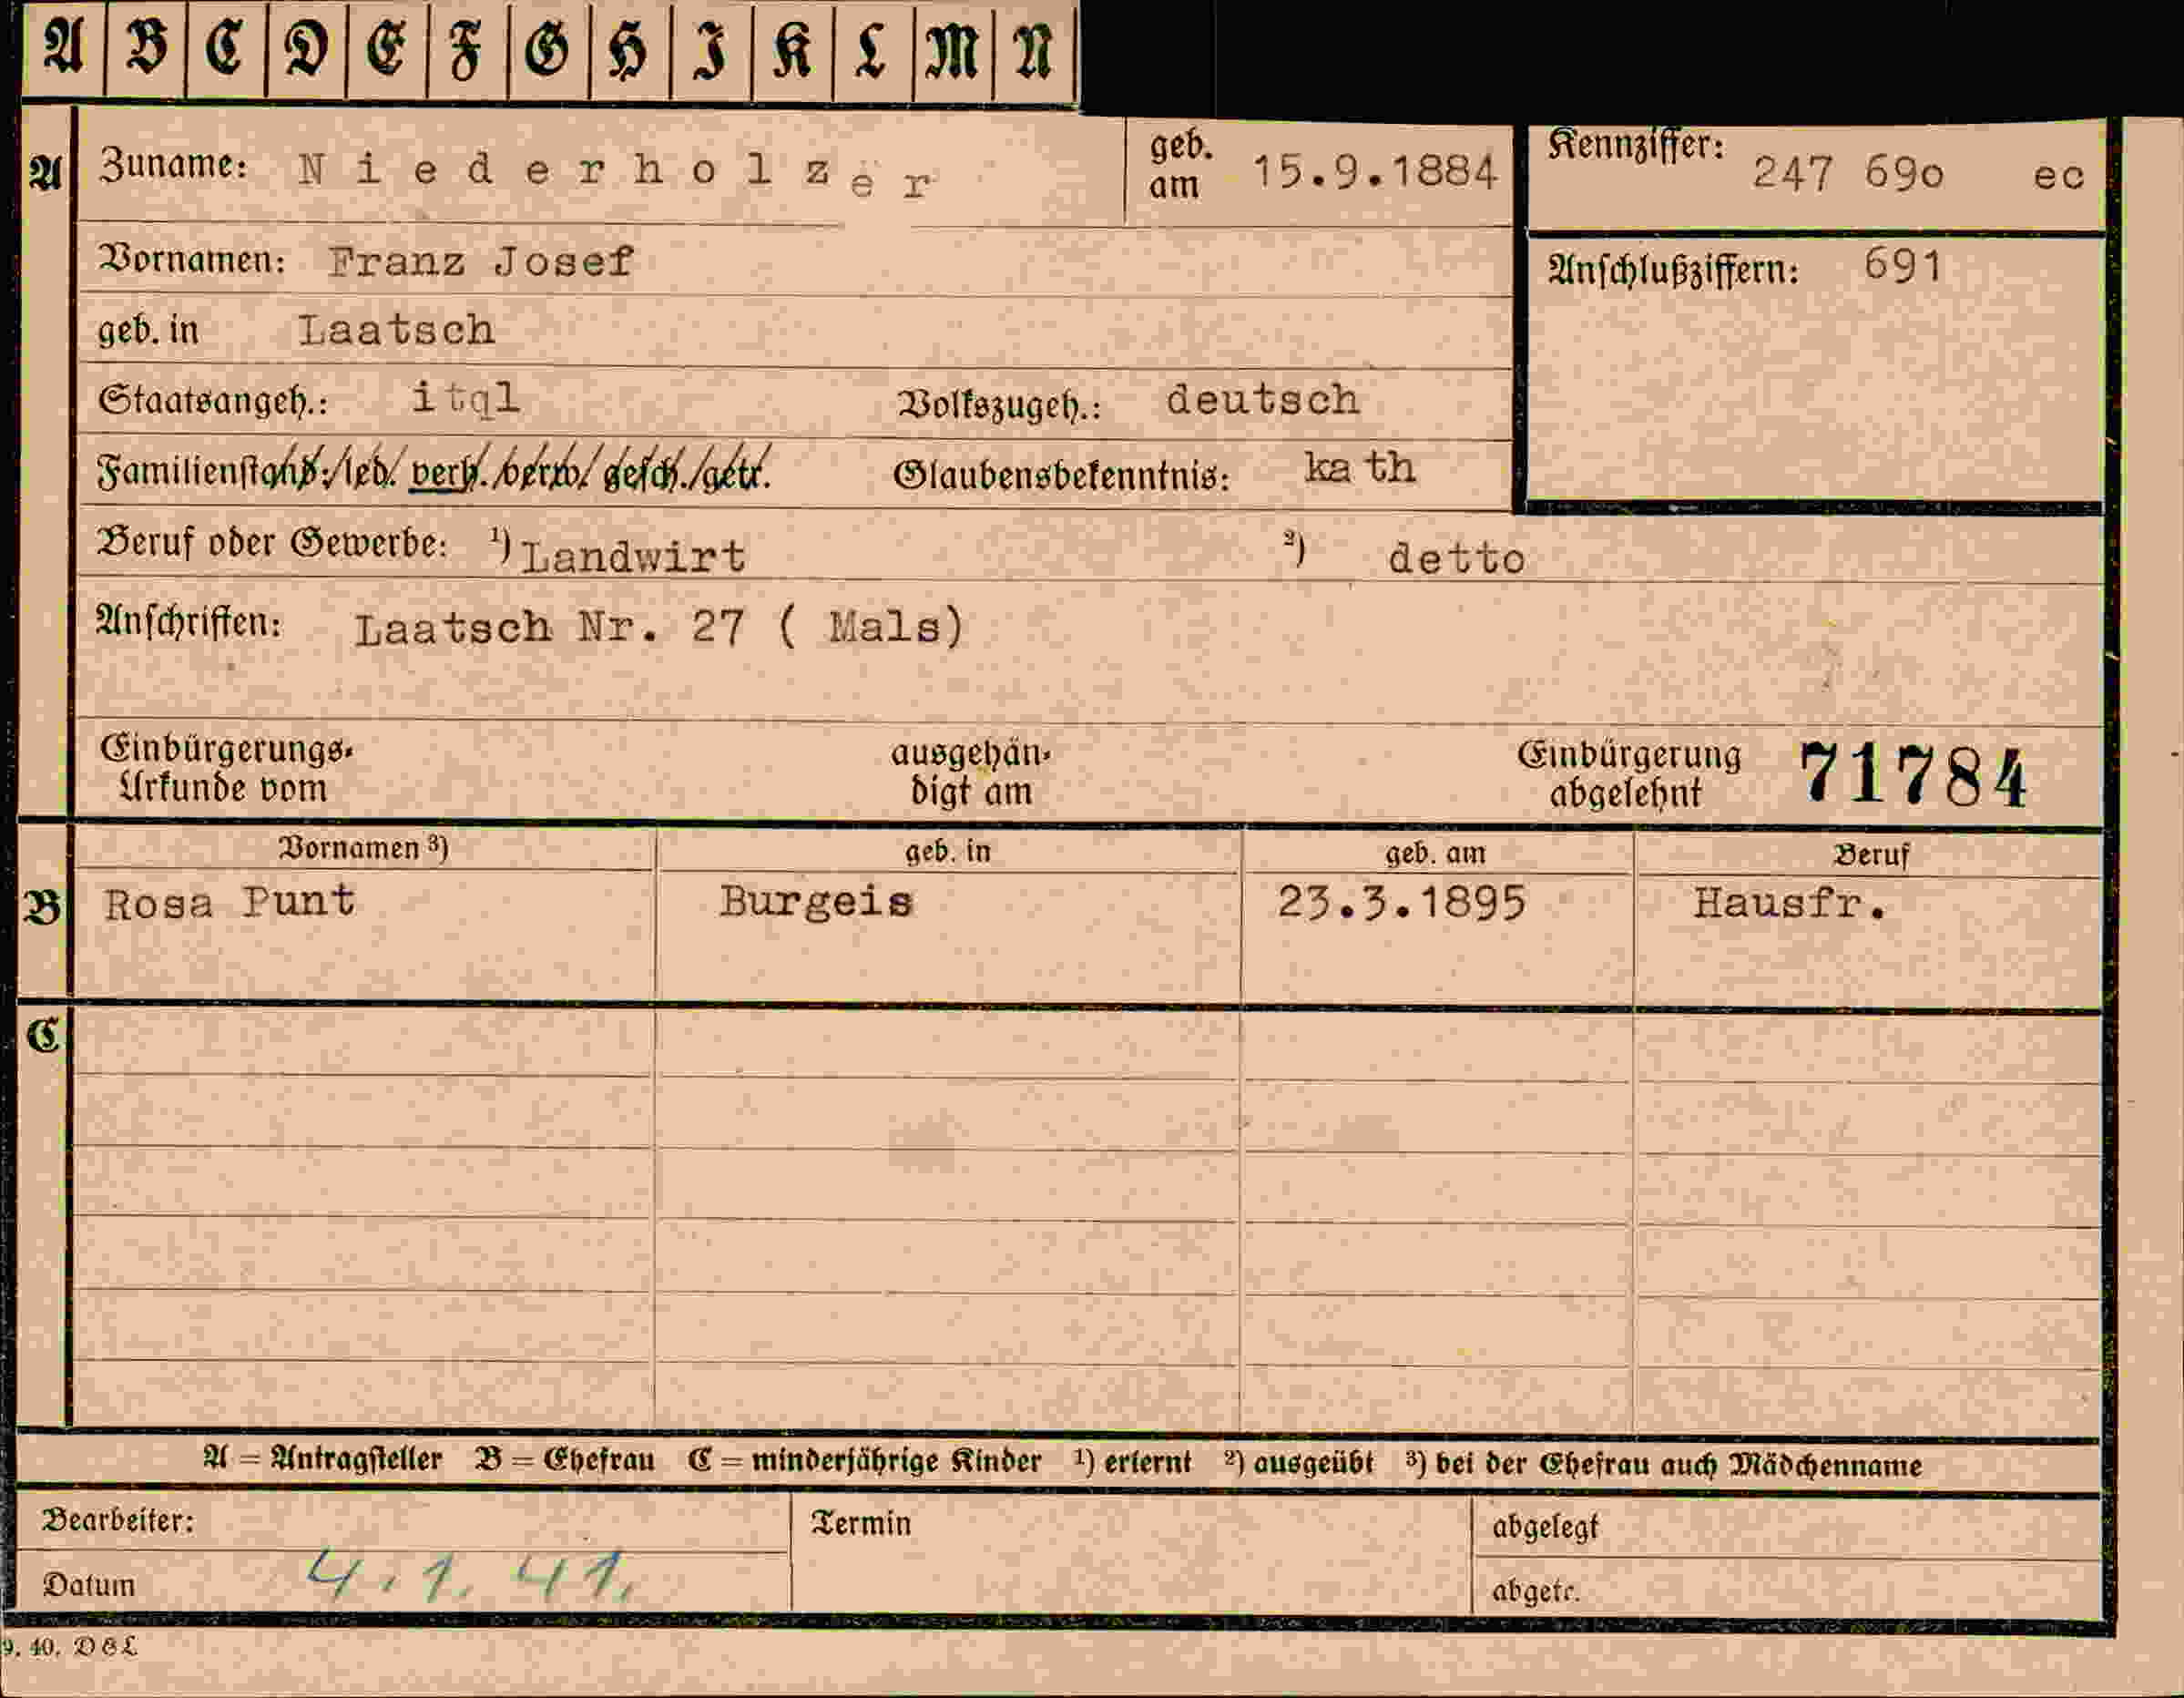 A B C D E F G H I K L M N
A Zuname: Niederholzer geb. am 15.9.1884 Kennziffer: 247 690 ec
Vornamen: Franz Josef Anschlußziffern: 691
geb. in Laatsch
Staatsangeh.: ital Volkszugeh.: deutsch
Familienstand: led. verh. verw. gesch. getr. Glaubensbekenntnis: ka th
Beruf oder Gewerbe: ¹) Landwirt ²) detto
Anschriften: Laatsch Nr. 27 ( Mals)
Einbürgerungs- ausgehän- Einbürgerung 71784
Urkunde vom digt am abgelehnt
Vornamen ³) geb. in geb. am Beruf
B Rosa Punt Burgeis 23.3.1895 Hausfr.
C
A = Antragsteller B = Ehefrau C = minderjährige Kinder ¹) erlernt ²) ausgeübt ³) bei der Ehefrau auch Mädchenname
Bearbeiter: Termin abgelegt
Datum 4.1.41. abgetr.
9. 40. DGL